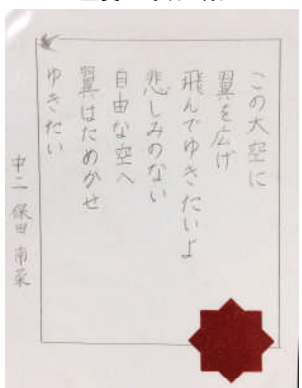 この大空に
翼を広げ
飛んでゆきたいよ
悲しみのない
自由な空へ
翼はためかせ
ゆきたい
中二 保田 南菜